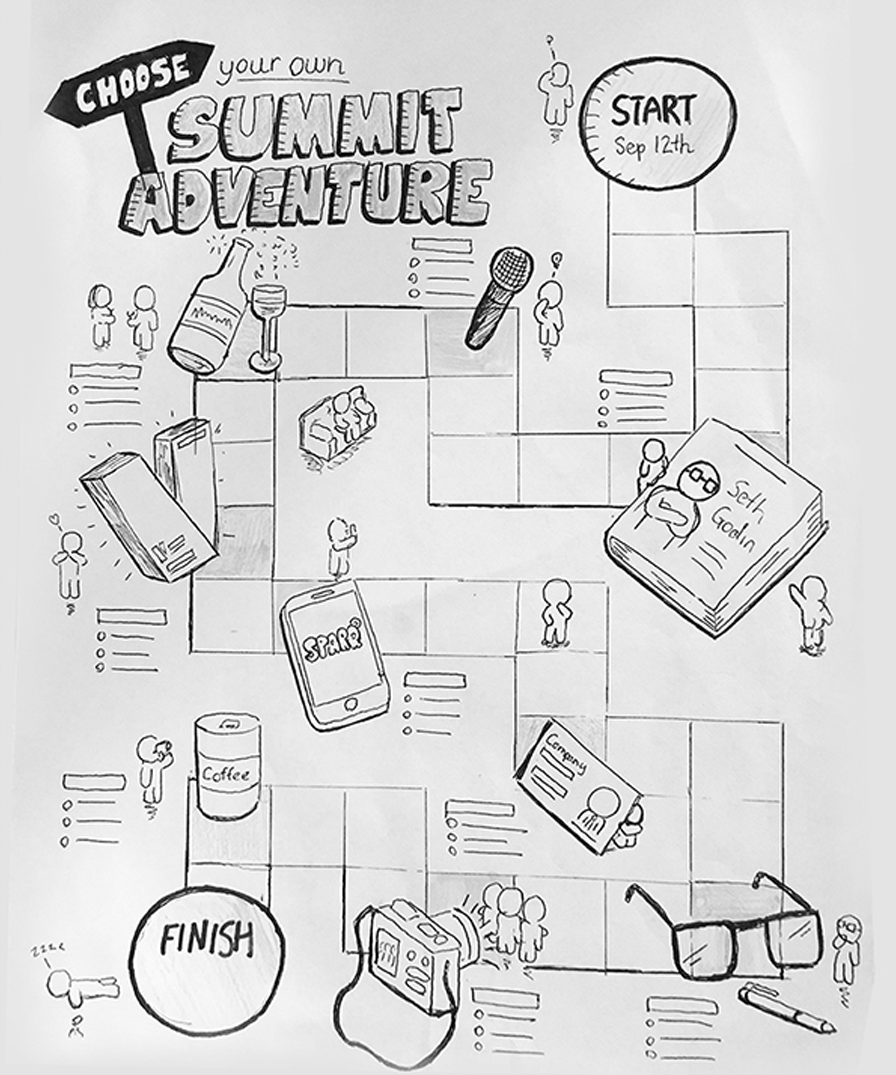 CHOOSE
your own
SUMMIT
ADVENTURE
START
Sep 12th
Seth
Godin
SPARQ
Company
Coffee
FINISH
zzzz